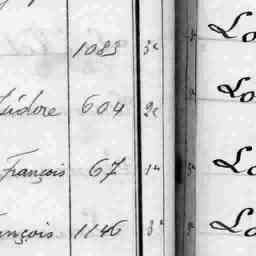 1083 3e Lo
Isidore 604 2e Lo
François 67 1er Lo
nçois 1146 3e Lo